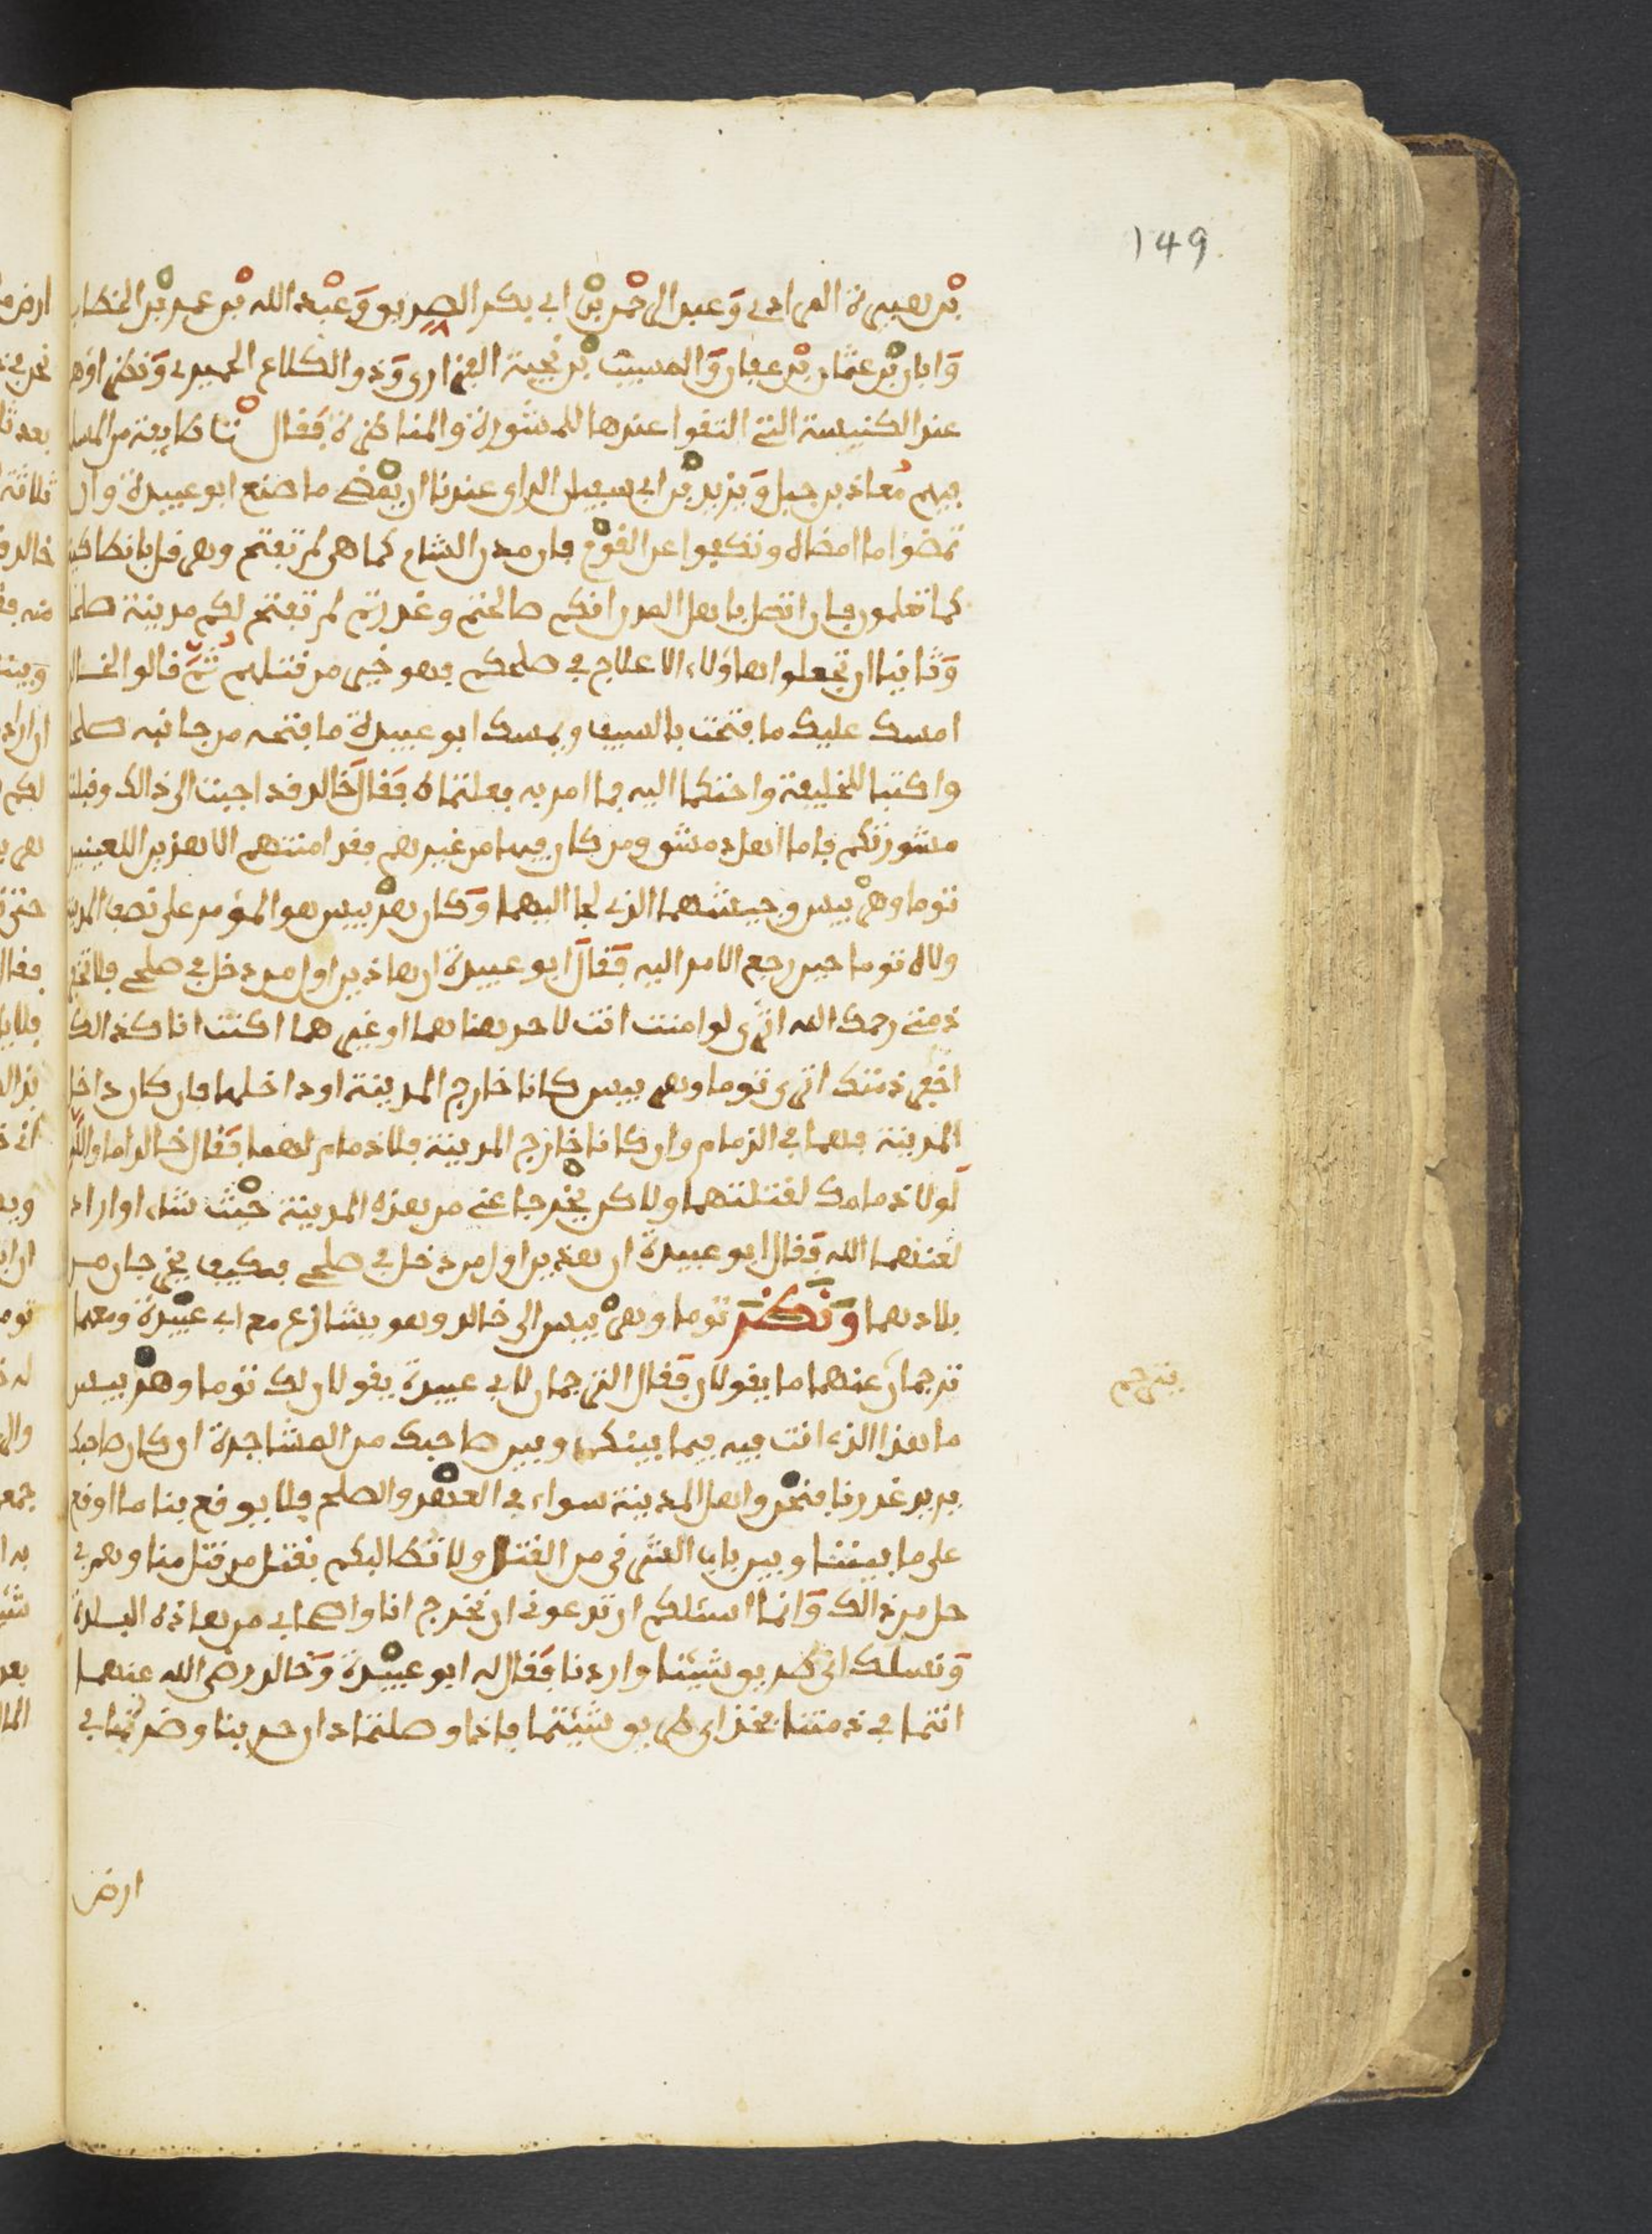 149
بن هبيرة المرادي وعبد الرحمن بن ابي بكر الصديق وعبد الله بن عمر بن الخطاب
وابان بن عثمان بن عفان والمسيب بن نجية الفزاري وذو الكلاع الحميري ونظراؤهم
عند الكنيسة التي التقوا عندها للمشورة والمناظرة فقال طايفة من المسلمين
فيهم معاذ بن جبل ويزيد بن ابي سفيان الراي عندنا ان يمضي ما صنع ابو عبيدة وان
تمضوا ما امضاه وتكفوا عن القوم فان مدن الشام كما هي لم تفتح وهرقل بانطاكية
كما تعلمون فان اتصل باهل المدن انكم صالحتم وغدرتم لم تفتح لكم مدينة صلحا
وثانيا ان تجعلوا هاولاء الاعلاج في صلحكم فهو خير من قتلهم ثم قالوا لخالد
امسك عليك ما فتحت بالسيف ويمسك ابو عبيدة ما فتحه من جانبه صلحا
واكتبا للخليفة واحتكما اليه فما امر به فعلتماه فقال خالد قد اجبت الى ذالك وقبلت
مشورتكم فاما اهل دمشق ومن كان فيها من غيرهم فقد امنتهم الا هذين اللعينين
توما وهربيس وجيشهما الذي لجا اليهما وكان هربيس هو المؤمر على نصف المدينة
ولاه توما حين رجع الامر اليه فقال ابو عبيدة ان هاذين اول من دخل في صلحي فلا تخفر
ذمتي رحمك الله اترى لو امنت انت لاحد هنا هما او غيرهما اكنت انا كذالك
اخفر ذمتك اترى توما وهربيس كانا خارج المدينة او داخلها فان كان داخل
المدينة فهما في الذمام وان كانا خارج المدينة فلا ذمام لهما فقال خالد اما والله
لولا ذمامك لقتلتهما ولاكن يخرجا عني من هذه المدينة حيث شاء او ارادا
لعنهما الله فقال ابو عبيدة ان هذين اول من دخل في صلحي فكيف يخرجان من
بلادهما ونظر توما وهربيس الى خالد وهو يتنازع مع ابي عبيدة ومعهما
ترجمان عنهما ما يقولان فقال الترجمان لابي عبيدة يقولان لك توما وهربيس
يترجم
ما هذا الذي انت فيه فيما بينك وبين صاحبك من المشاجرة ان كان صاحبك
يريد غدرنا فنحن واهل المدينة سواء في العهد والصلح فلا يوقع بنا ما اوقع
على ما بيننا وبين باب الشرقي من القتل ولا نطالبكم بقتل من قتل منا وهم في
حل من ذالك وانما اسئلكم ان تدعوني ان نخرج انا واصحابي من هاذه البلدة
ونسلك اي طريق شيئنا واردنا فقال له ابو عبيدة وخالد رضي الله عنهما
انتما في ذمتنا فخذ اي طريق شيئتما فاذا وصلتما دار حربنا وصرتما في
ارض